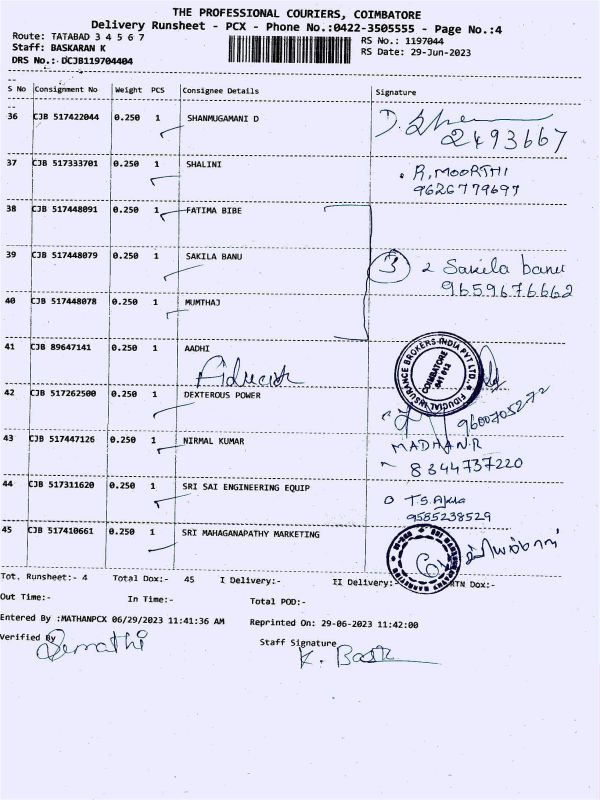 THE PROFESSIONAL COURIERS, COIMBATORE
Delivery Runsheet - PCX - Phone No.:0422-3505555 - Page No.:4
Route: TATABAD 3 4 5 6 7
RS No.: 1197044
Staff: BASKARAN K
RS Date: 29-Jun-2023
DRS No.: DCJB119704404
S No Consignment No Weight PCS Consignee Details Signature
36 CJB 517422044 0.250 1 SHANMUGAMANI D
2493667
37 CJB 517333701 0.250 1 SHALINI R, MOORTHI
9626779697
38 CJB 517448091 0.250 1 FATIMA BIBE
39 CJB 517448079 0.250 1 SAKILA BANU 3 2 Sakila banu
9659676662
40 CJB 517448078 0.250 1 MUMTHAJ
41 CJB 89647141 0.250 1 AADHI
FIDUCIAL INSURANCE BROKERS INDIA PVT LTD.,
COIMBATORE
641 012
42 CJB 517262500 0.250 1 DEXTEROUS POWER
9600705272
43 CJB 517447126 0.250 1 NIRMAL KUMAR MADHAN.R
8344737220
44 CJB 517311620 0.250 1 SRI SAI ENGINEERING EQUIP T.S.
9585238529
45 CJB 517410661 0.250 1 SRI MAHAGANAPATHY MARKETING
Tot. Runsheet:- 4 Total Dox:- 45 I Delivery:- II Delivery:- RTN Dox:-
Out Time:- In Time:- Total POD:-
Entered By :MATHANPCX 06/29/2023 11:41:36 AM Reprinted On: 29-06-2023 11:42:00
Verified By
Staff Signature
K. Bask